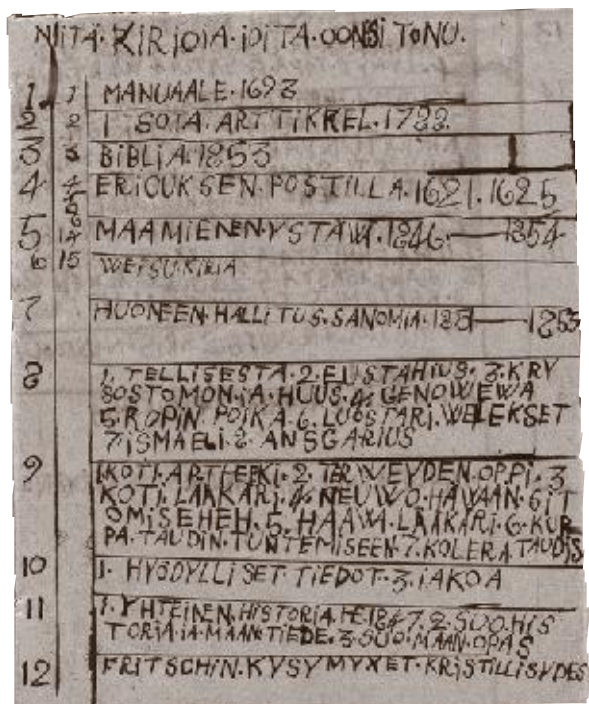 NIITÄ. KIRIOIA. IOITA. OONSI TONU.
1 1 MANUAALE. 1693
2 2 1 SOTA. ARTTIKREL. 1722.
3 3 BIBLIA. 1853
4 4 ERICUKSEN. POSTILLA. 1621. 1625
5
5 6 14 MAAMIENEN. YSTAWA. 1846. — 1854
6 15 WEISUKIRIA
7 HUONEEN. HALLITUS. SANOMIA. — 1855
8 1. TELLISESTA. 2. EUSTAHIUS. 3. KRY
SOSTOMON. IA. HUUS. 4. GENOWEWA
5. ROPIN. POIKA. 6. LUOSTARI. WELEKSET
7. ISMAELI. 8. ANSGARIUS
9 1. KOTI. APTHEEKI. 2. TERWEYDEN. OPPI. 3
KOTI. LÄÄKÄRI. 4. NEUWO. HAWAAN. SIT
OMISEHEH. 5. HAAWA. LÄÄKÄRI. 6. KUP
PA. TAUDIN. TUNTEMISEEN. 7. KOLERA. TAUDIS
10 1. HYÖDYLLISET. TIEDOT. 3. IAKOA
11 1. YHTEINEN. HISTORIA. 1847. 2. SUO. HIS
TORIA. IA. MAAN. TIEDE. 3. SUOMAAN. OPAS
12 FRITSCHIN. KYSYMYXET. KRISTILLISYDES